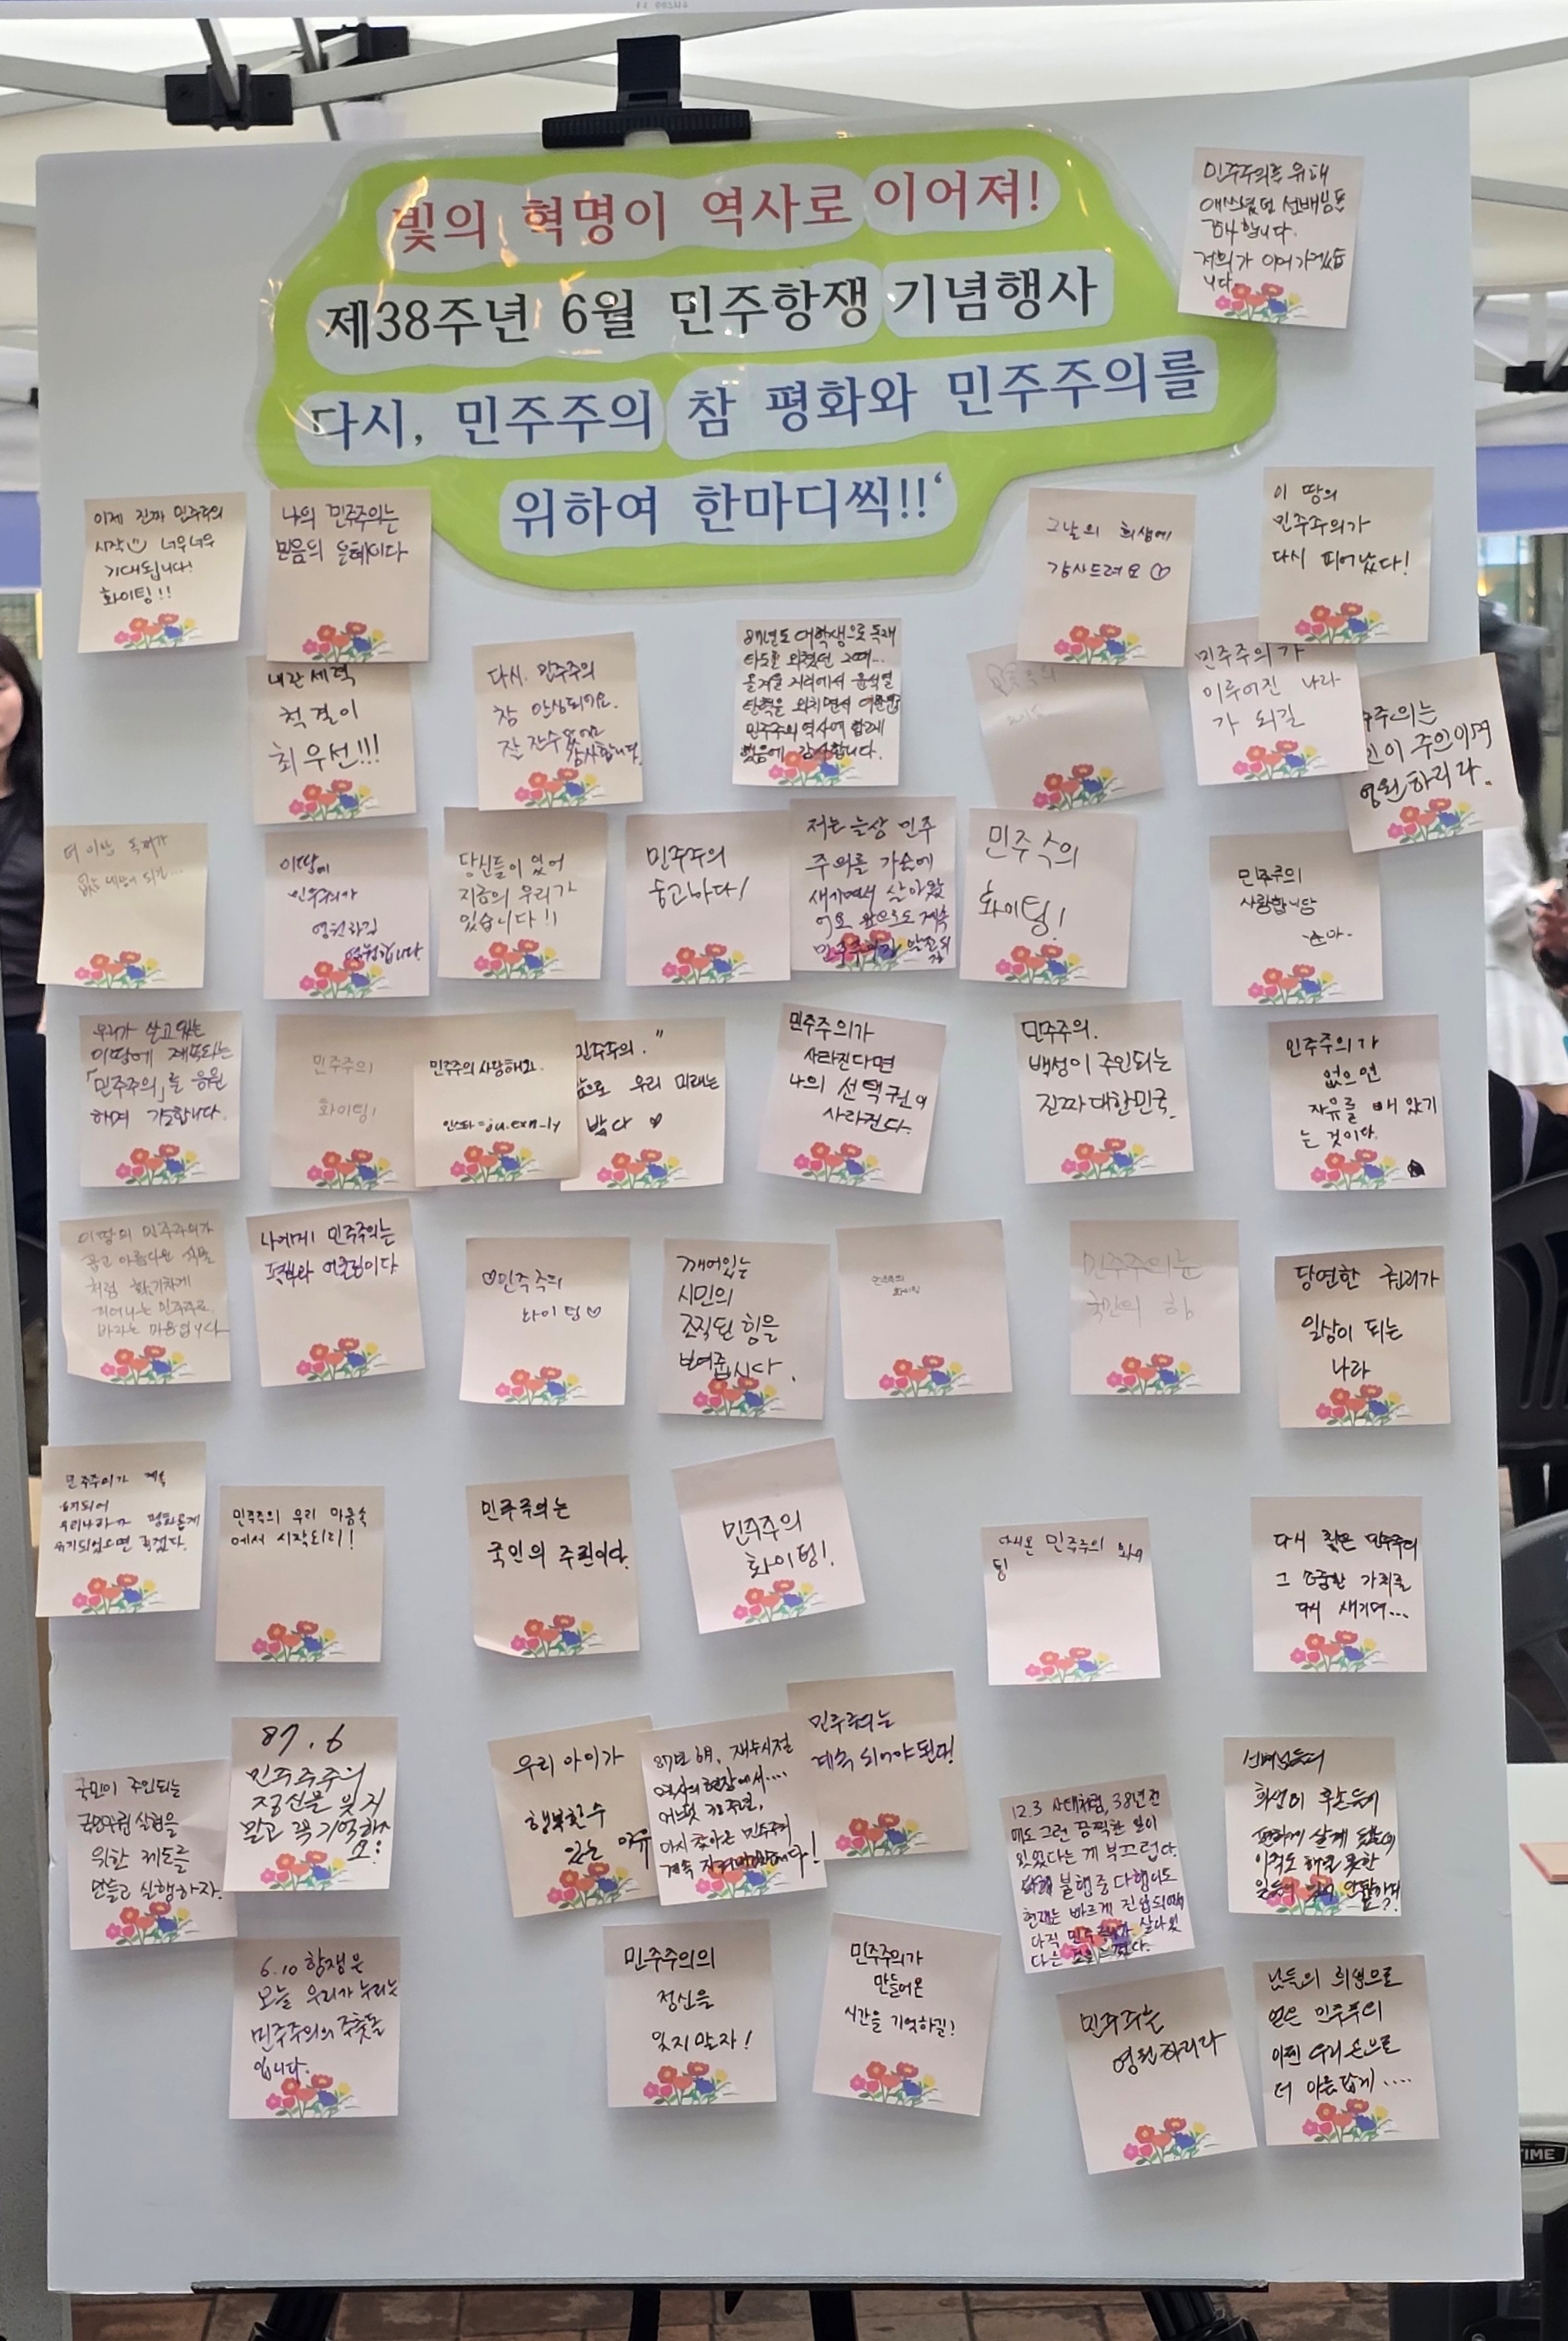 빛의 혁명이 역사로 이어져!
제38주년 6월 민주항쟁 기념행사
다시, 민주주의 참 평화와 민주주의를
위하여 한마디씩!!‘
민주주의를 위해
애쓰셨던 선배님들
감사합니다.
저희가 이어가겠습
니다.
이제 진짜 민주주의
시작 너무너무
기대됩니다!
화이팅!!
나의 민주주의는
믿음의 은혜이다
그날의 희생에
감사드려요♡
이 땅의
민주주의가
다시 피어났다!
내란세력
척결이
최우선!!!
다시. 민주주의
참 안심되어요.
감사합니다.
87년도 대학생으로 독재
타도를 외쳤던 그때...
올겨울 거리에서 윤석열
탄핵을 외치면서 여전히
민주주의 역사에 함께
했음에 감사합니다.
민주주의가
이루어진 나라
가 되길
이 주인이며
영원하리라.
더 이상 독재가
없는 되길...
이땅에
민주주의가
영원하길
당신들이 있어
지금의 우리가
있습니다!!
민주주의
숭고하다!
저는 늘상 민주
주의를 가슴에
새기면서 살아왔
어요 앞으로도 계속
민주주의가
민주주의
화이팅!
민주주의
사랑합니당
우리가 살고있는
이땅에 재도되는
「민주주의」를 응원
하며 갑니다.
민주주의
화이팅!
민주주의 사랑해요
인스타=ju.exn_ly
민주주의."
앞으로 우리 미래는
밝다 ♥
민주주의가
사라진다면
나의 선택권이
사라진다.
민주주의.
백성이 주인되는
진짜대한민국.
민주주의가
없으면
자유를 빼앗기
는 것이다.
이땅의 민주주의가
곱고 아름다운 식물
처럼 활기차게
피어나는 민주주의
바라는 마음입니다
나에게 민주주의는
이다
♡민주주의
화이팅♡
깨어있는
시민의
조직된 힘을
보여줍시다.
민주주의
화이팅
민주주의는
국민의 힘
당연한 권리가
일상이 되는
나라
민주주의가 계속
유지되어
우리나라가 평화롭게
유지되었으면 좋겠다.
민주주의 우리 마음속
에서 시작되리!
민주주의는
국민의 주권이다.
민주주의
화이팅!
민주주의 화이
팅!
다시 찾은 민주주의
그 소중한 가치를
다시 새기며...
국민이 주인되는
실현을
위한 제도를
만들고 실행하자.
87.6
민주주의
정신을 잊지
말고 꼭 기억하자
우리 아이가
행복할 수
있는
87년 6월, 재수시절
역사의 현장에서....
어느덧 38주년,
다시 찾아온 민주주의
계속
민주주의는
계속 되어야 된다!
12.3 사태처럼, 38년전
에도 그런 끔찍한 일이
있었다는 게 부끄럽다.
불행중 다행이도
현재는 빠르게 진압되어
아직 민주주의가 살아있
다는
선배님들의
희생이 후손들이
편하게 살게 됐는데
아직도 해결 못한
6.10 항쟁은
오늘 우리가 누리는
민주주의의 주춧돌
입니다.
민주주의의
정신을
잊지 말자!
민주주의가
만들어온
시간을 기억하길!
민주주는
영원하리라
님들의 희생으로
얻은 민주주의
이젠 우리 손으로
더 아름답게....